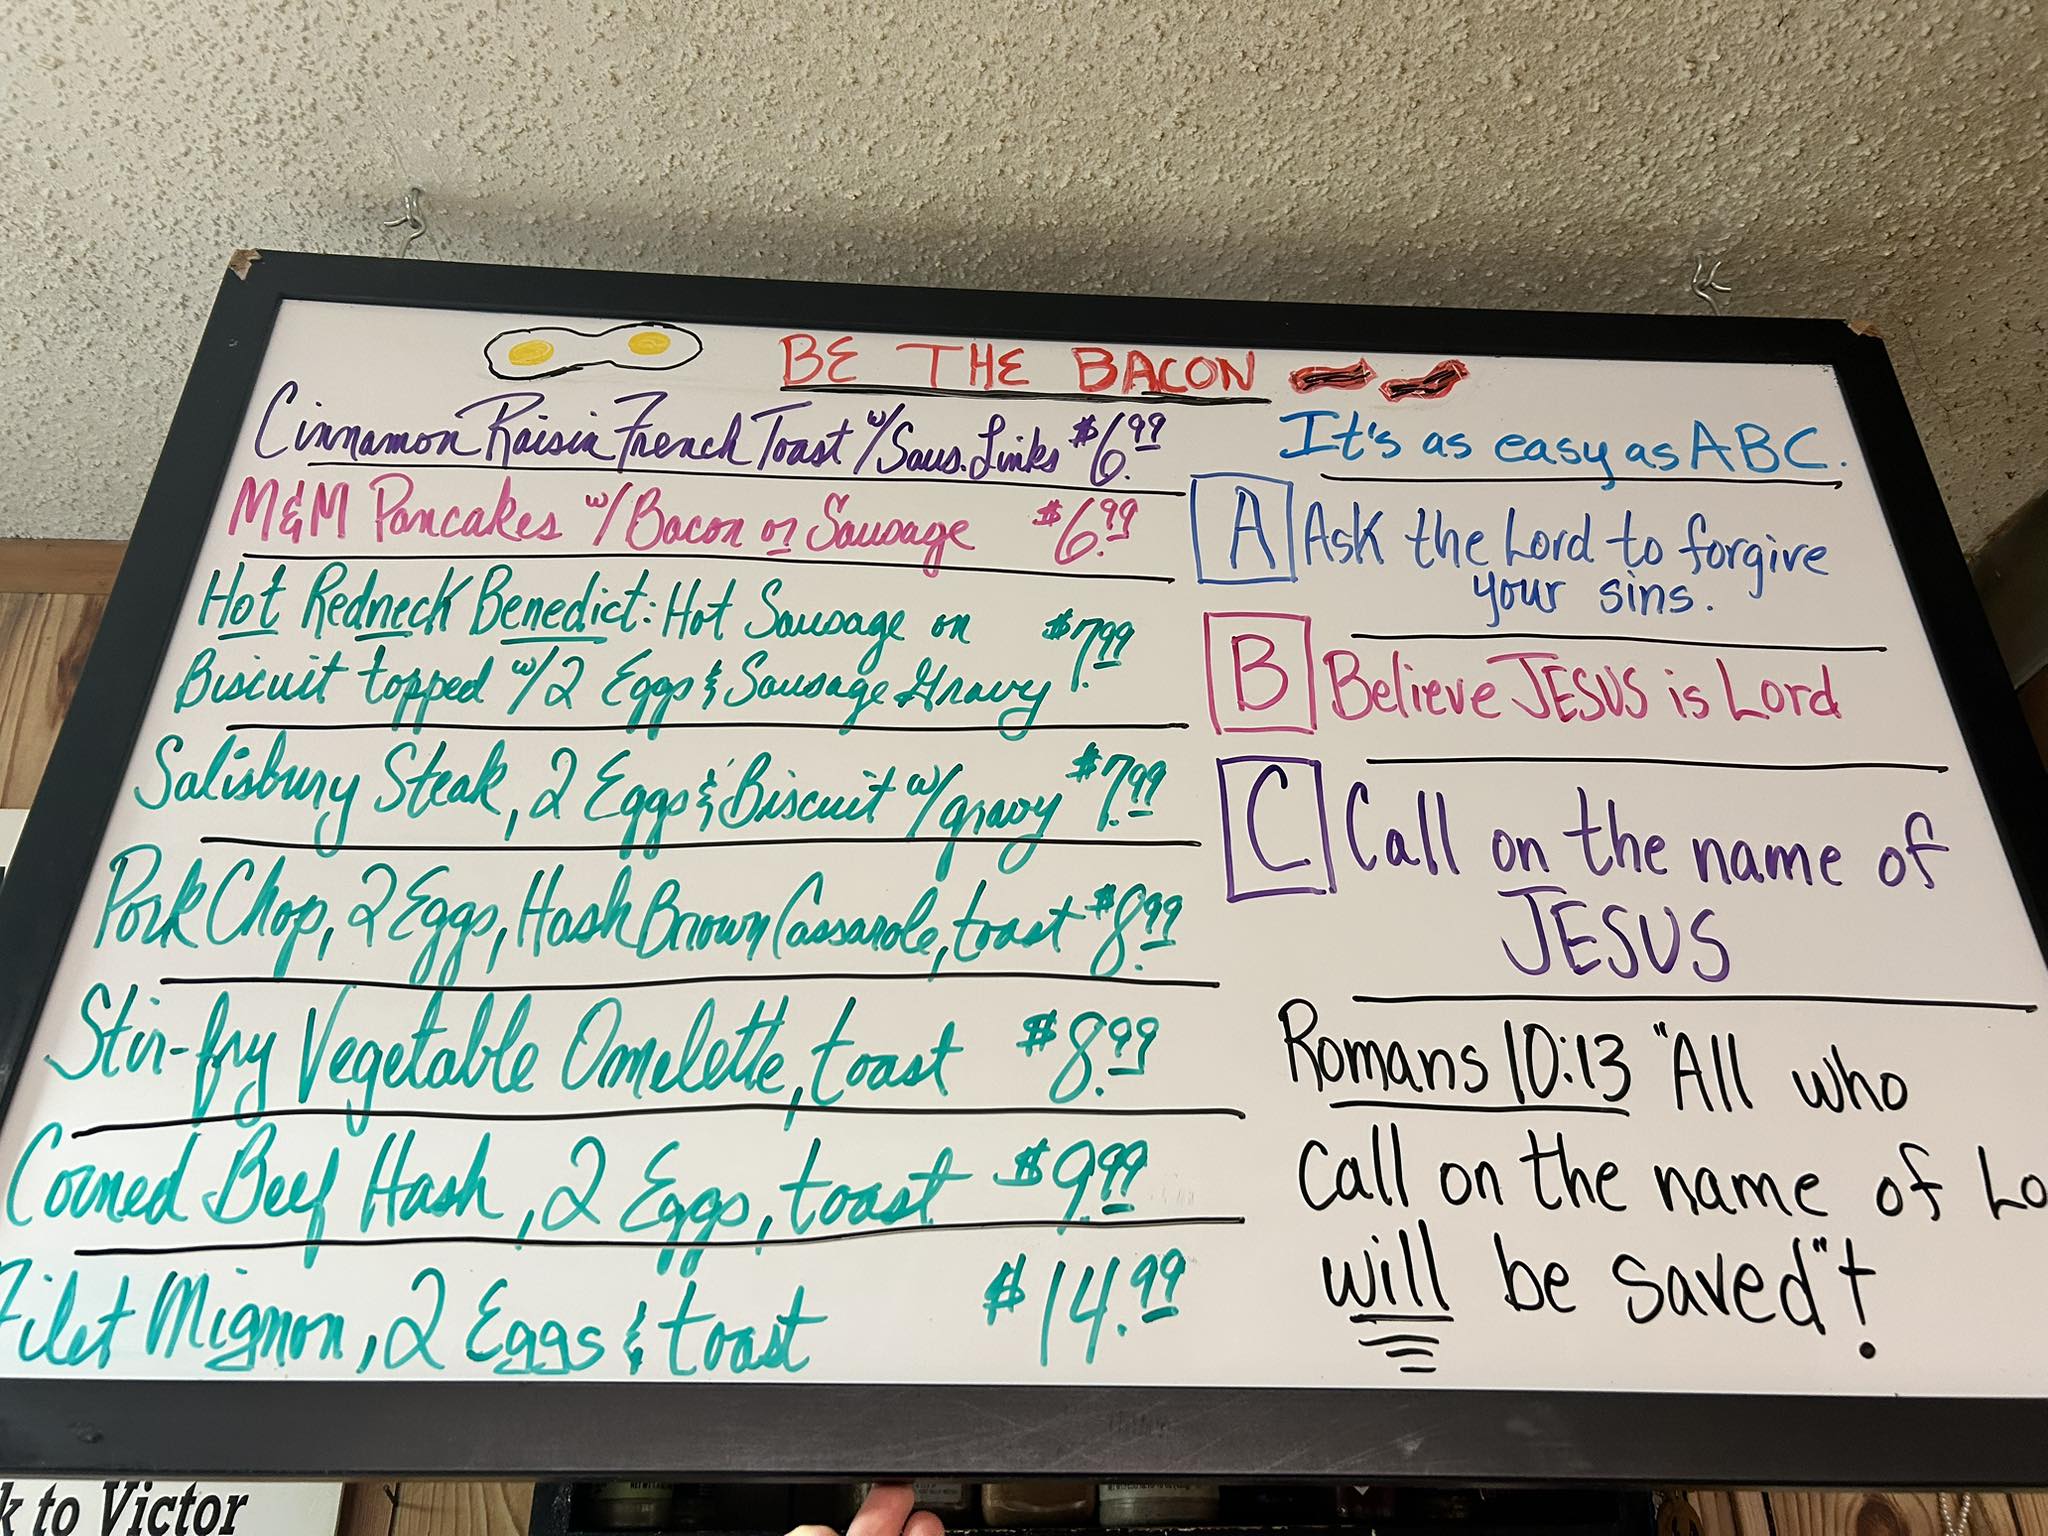 BE THE BACON
Cinnamon Raisin French Toast w/Saus. Links $6.99
M&M Pancakes w/Bacon or Sausage $6.99
Hot Redneck Benedict: Hot Sausage on
Biscuit topped w/2 Eggs & Sausage Gravy $7.99
Salisbury Steak, 2 Eggs & Biscuit w/gravy $7.99
Pork Chop, 2 Eggs, Hash Brown Cassarole, toast $8.99
Stir-fry Vegetable Omelette, toast $8.99
Corned Beef Hash, 2 Eggs, toast $9.99
Filet Mignon, 2 Eggs & toast $14.99
It's as easy as ABC.
A Ask the Lord to forgive
your sins.
B Believe JESUS is Lord
C Call on the name of
JESUS
Romans 10:13 "All who
call on the name of Lo
will be saved"!
k to Victor